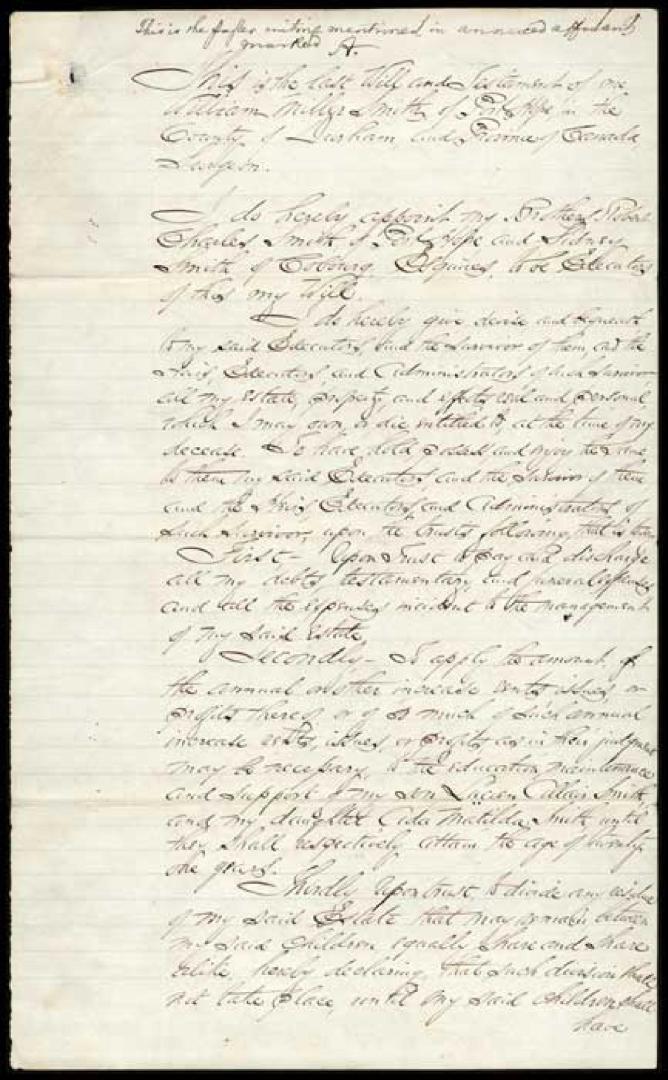 This is the paper writing mentioned in annexed affidavit
marked A.
This is the last Will and Testament of me
William Millar Smith of Port Hope in the
County of Durham and Province of Canada
Surgeon.
I do hereby appoint my Brothers Robert
Charles Smith of Port Hope and Sidney
Smith of Cobourg, Esquires, to be Executors
of this my Will.
I do hereby give devise and bequeath
to my said Executors and the Survivor of them, and the
Heirs Executors, and Administrators of such Survivor
all my estate, property, and effects real and personal
which I may own, or die entitled to, at the time of my
decease. To have hold possess and enjoy the same
to them my said Executors and the Survivor of them
and the Heirs, Executors, and Administrators of
such Survivor, upon the trusts following, that is to say
First - Upon Trust to pay and discharge
all my debts testamentary, and funeral expenses
and all the expenses incident to the management
of my said estate.
Secondly - To apply the amount of
the annual or other increase rents issues, or
profits thereof or of so much of such annual
increase rents, issues, or profits as in their judgment
may be necessary, to the education, maintenance
and support of my son Allan Smith,
and my daughter Ada Matilda Smith until
they shall respectively attain the age of twenty
one years.
Thirdly Upon trust, to divide any residue
of my said Estate that may remain between
my said Children equally share and share
alike, hereby declaring, that such division shall
not take place, until my said children shall
have